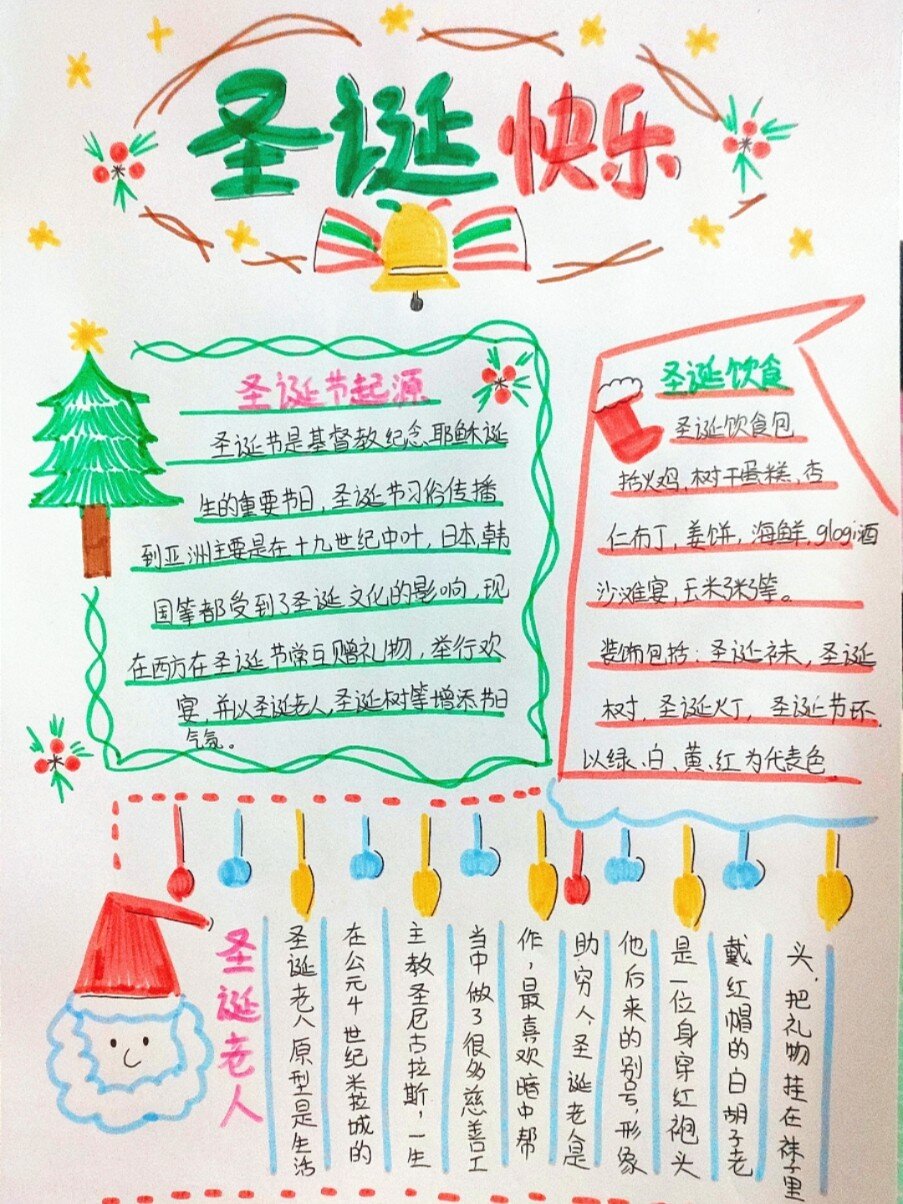 圣诞快乐
圣诞节起源
圣诞节是基督教纪念耶稣诞
生的重要节日,圣诞节习俗传播
到亚洲主要是在十九世纪中叶,日本,韩
国等都受到了圣诞文化的影响,现
在西方在圣诞节常互赠礼物,举行欢
宴,并以圣诞老人,圣诞树等增添节日
气氛。
圣诞饮食
圣诞饮食包
括火鸡,树干蛋糕,杏
仁布丁,姜饼,海鲜,glogi酒
沙滩宴,玉米粥等。
装饰包括:圣诞袜,圣诞
树,圣诞灯,圣诞节环.
以绿、白、黄、红为代表色
圣诞老人
圣诞老人原型是生活
在公元4世纪米拉城的
主教圣尼古拉斯,一生
当中做了很多慈善工
作,最喜欢暗中帮
助穷人,圣诞老人是
他后来的别号,形象
是一位身穿红袍头
戴红帽的白胡子老
头,把礼物挂在袜子里